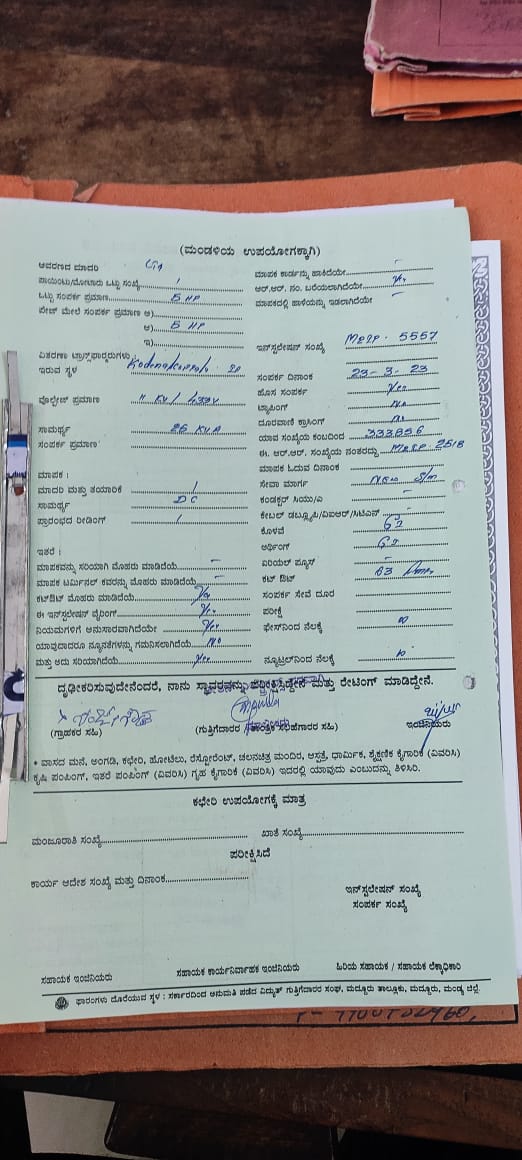 (ಮಂಡಳಿಯ ಉಪಯೋಗಕ್ಕಾಗಿ)
ಆವರಣದ ಮಾದರಿ
ಪಾಯಿಂಟು/ಮೋಟಾರು ಒಟ್ಟು ಸಂಖ್ಯೆ 1
ಒಟ್ಟು ಸಂಪರ್ಕ ಪ್ರಮಾಣ 5 HP
ಪೇಜ್ ಮೇಲೆ ಸಂಪರ್ಕ ಪ್ರಮಾಣ ಅ)
ಆ) 5 HP
ಇ)
ವಿತರಣಾ ಟ್ರಾನ್ಸ್‌ಫಾರ್ಮರುಗಳು :
ಇರುವ ಸ್ಥಳ
ವೊಲ್ಟೇಜ್ ಪ್ರಮಾಣ 11 KV / 433V
ಸಾಮರ್ಥ್ಯ 25 KVA
ಸಂಪರ್ಕ ಪ್ರಮಾಣ
ಮಾಪಕ :
ಮಾದರಿ ಮತ್ತು ತಯಾರಿಕೆ
ಸಾಮರ್ಥ್ಯ DC
ಪ್ರಾರಂಭದ ರೀಡಿಂಗ್
ಇತರೆ :
ಮಾಪಕವನ್ನು ಸರಿಯಾಗಿ ಮೊಹರು ಮಾಡಿದೆಯೆ
ಮಾಪಕ ಟರ್ಮಿನಲ್ ಕವರನ್ನು ಮೊಹರು ಮಾಡಿದೆಯೆ
ಕಟ್‌ಔಟ್ ಮೊಹರು ಮಾಡಿದೆಯೆ Yes
ಈ ಇನ್‌ಸ್ಟಲೇಷನ್ ವೈರಿಂಗ್ Yes
ನಿಯಮಗಳಿಗೆ ಅನುಸಾರವಾಗಿದೆಯೇ Yes
ಯಾವುದಾದರೂ ನ್ಯೂನತೆಗಳನ್ನು ಗಮನಿಸಲಾಗಿದೆಯೆ No
ಮತ್ತು ಅದು ಸರಿಯಾಗಿದೆಯೆ Yes
ಮಾಪಕ ಕಾರ್ಡನ್ನು ಹಾಕಿದೆಯೇ
ಆರ್.ಆರ್. ನಂ. ಬರೆಯಲಾಗಿದೆಯೇ Yes
ಮಾಪಕದಲ್ಲಿ ಹಾಳೆಯನ್ನು ಇಡಲಾಗಿದೆಯೇ
ಇನ್‌ಸ್ಟಲೇಷನ್ ಸಂಖ್ಯೆ 5557
ಸಂಪರ್ಕ ದಿನಾಂಕ 23-3-23
ಹೊಸ ಸಂಪರ್ಕ Yes
ಟ್ಯಾಪಿಂಗ್ No
ದೂರವಾಣಿ ಕ್ರಾಸಿಂಗ್ No
ಯಾವ ಸಂಖ್ಯೆಯ ಕಂಬದಿಂದ 333856
ಈ. ಆರ್.ಆರ್. ಸಂಖ್ಯೆಯ ನಂತರದ್ದು 2518
ಮಾಪಕ ಓದುವ ದಿನಾಂಕ
ಸೇವಾ ಮಾರ್ಗ New S/m
ಕಂಡಕ್ಟರ್ ಸಿಯು/ಎ
ಕೇಬಲ್ ಡಬ್ಲ್ಯೂಪಿ/ವಿಐಆರ್/ಸಿಟಿಎಸ್
ಕೊಳವೆ
ಅರ್ಥಿಂಗ್
ಏರಿಯಲ್ ಪ್ಯೂಸ್
ಕಟ್ ಔಟ್ 63 Amps
ಸಂಪರ್ಕ ಸೇವೆ ದೂರ
ಪರೀಕ್ಷೆ
ಫೇಸ್‌ನಿಂದ ನೆಲಕ್ಕೆ ∞
ನ್ಯೂಟ್ರಲ್‌ನಿಂದ ನೆಲಕ್ಕೆ
ದೃಢೀಕರಿಸುವುದೇನೆಂದರೆ, ನಾನು ಸ್ಥಾವರವನ್ನು ಪರೀಕ್ಷಿಸಿದ್ದೇನೆ ಮತ್ತು ರೇಟಿಂಗ್ ಮಾಡಿದ್ದೇನೆ.
(ಗ್ರಾಹಕರ ಸಹಿ)
(ಗುತ್ತಿಗೆದಾರರ ತಾಂತ್ರಿಕ ಸಲಹೆಗಾರರ ಸಹಿ)
ಇಂಜಿನಿಯರು
* ವಾಸದ ಮನೆ, ಅಂಗಡಿ, ಕಛೇರಿ, ಹೋಟೆಲು, ರೆಸ್ಟೋರೆಂಟ್, ಚಲನಚಿತ್ರ ಮಂದಿರ, ಆಸ್ಪತ್ರೆ, ಧಾರ್ಮಿಕ, ಶೈಕ್ಷಣಿಕ ಕೈಗಾರಿಕೆ (ವಿವರಿಸಿ)
ಕೃಷಿ ಪಂಪಿಂಗ್, ಇತರೆ ಪಂಪಿಂಗ್ (ವಿವರಿಸಿ) ಗೃಹ ಕೈಗಾರಿಕೆ (ವಿವರಿಸಿ) ಇದರಲ್ಲಿ ಯಾವುದು ಎಂಬುದನ್ನು ತಿಳಿಸಿರಿ.
ಕಛೇರಿ ಉಪಯೋಗಕ್ಕೆ ಮಾತ್ರ
ಮಂಜೂರಾತಿ ಸಂಖ್ಯೆ ಖಾತೆ ಸಂಖ್ಯೆ
ಪರೀಕ್ಷಿಸಿದೆ
ಕಾರ್ಯ ಆದೇಶ ಸಂಖ್ಯೆ ಮತ್ತು ದಿನಾಂಕ
ಇನ್‌ಸ್ಟಲೇಷನ್ ಸಂಖ್ಯೆ
ಸಂಪರ್ಕ ಸಂಖ್ಯೆ
ಸಹಾಯಕ ಇಂಜಿನಿಯರು ಸಹಾಯಕ ಕಾರ್ಯನಿರ್ವಾಹಕ ಇಂಜಿನಿಯರು ಹಿರಿಯ ಸಹಾಯಕ / ಸಹಾಯಕ ಲೆಕ್ಕಾಧಿಕಾರಿ
ಫಾರಂಗಳು ದೊರೆಯುವ ಸ್ಥಳ : ಸರ್ಕಾರದಿಂದ ಅನುಮತಿ ಪಡೆದ ವಿದ್ಯುತ್ ಗುತ್ತಿಗೆದಾರರ ಸಂಘ, ಮದ್ದೂರು ತಾಲ್ಲೂಕು, ಮದ್ದೂರು, ಮಂಡ್ಯ ಜಿಲ್ಲೆ.